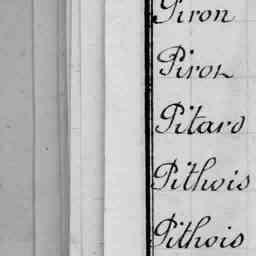 Piron
Piron
Pitard
Pithois
Pithois